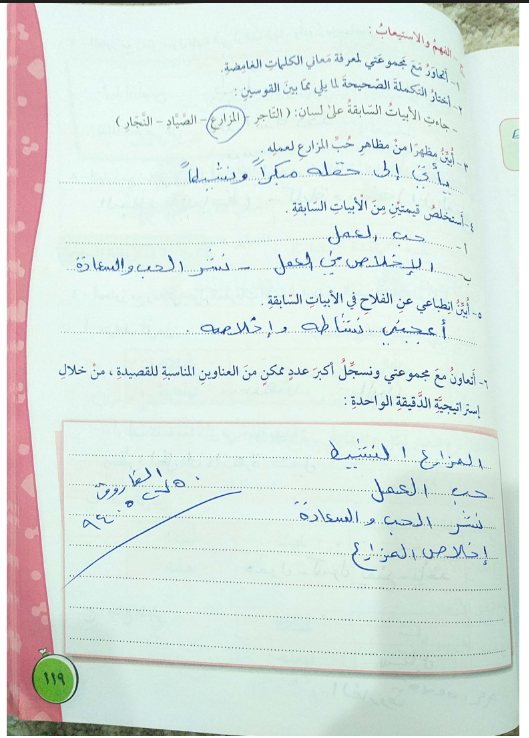 ج - الفهمُ والاستيعابُ :
١- أتحاوَرُ مَعَ مجموعتي لمعرفة مَعاني الكلماتِ الغامِضةِ.
٢- أختارُ التكملةَ الصّحيحةَ لما يلي ممّا بينَ القوسينِ :
- جاءتِ الأبياتُ السّابقةُ على لسان: ( التّاجرِ - المزارعِ - الصّيادِ - النّجارِ )
٣- أبيِّنُ مظهرًا منْ مظاهرِ حُبِّ المزارعِ لعملِهِ.
يأتي إلى حقله مبكراً ونشيطاً
٤- أستخلصُ قيمتَينِ مِنَ الأبياتِ السّابقةِ .
أ- حب العمل
ب- الإخلاص في العمل - نشر الحب والسعادة
٥- أبيِّنُ انطباعي عنِ الفلاحِ في الأبياتِ السّابقةِ .
أعجبني نشاطه وإخلاصه .
٦- أتعاونُ معَ مجموعتي ونسجِّلُ أكبرَ عددٍ ممكنٍ منَ العناوينِ المناسبةِ للقصيدةِ ، منْ خلالِ
إستراتيجيَّةِ الدَّقيقةِ الواحدةِ :
المزارع النشيط
حب العمل
نشر الحب والسعادة
إخلاص المزارع
١١٩